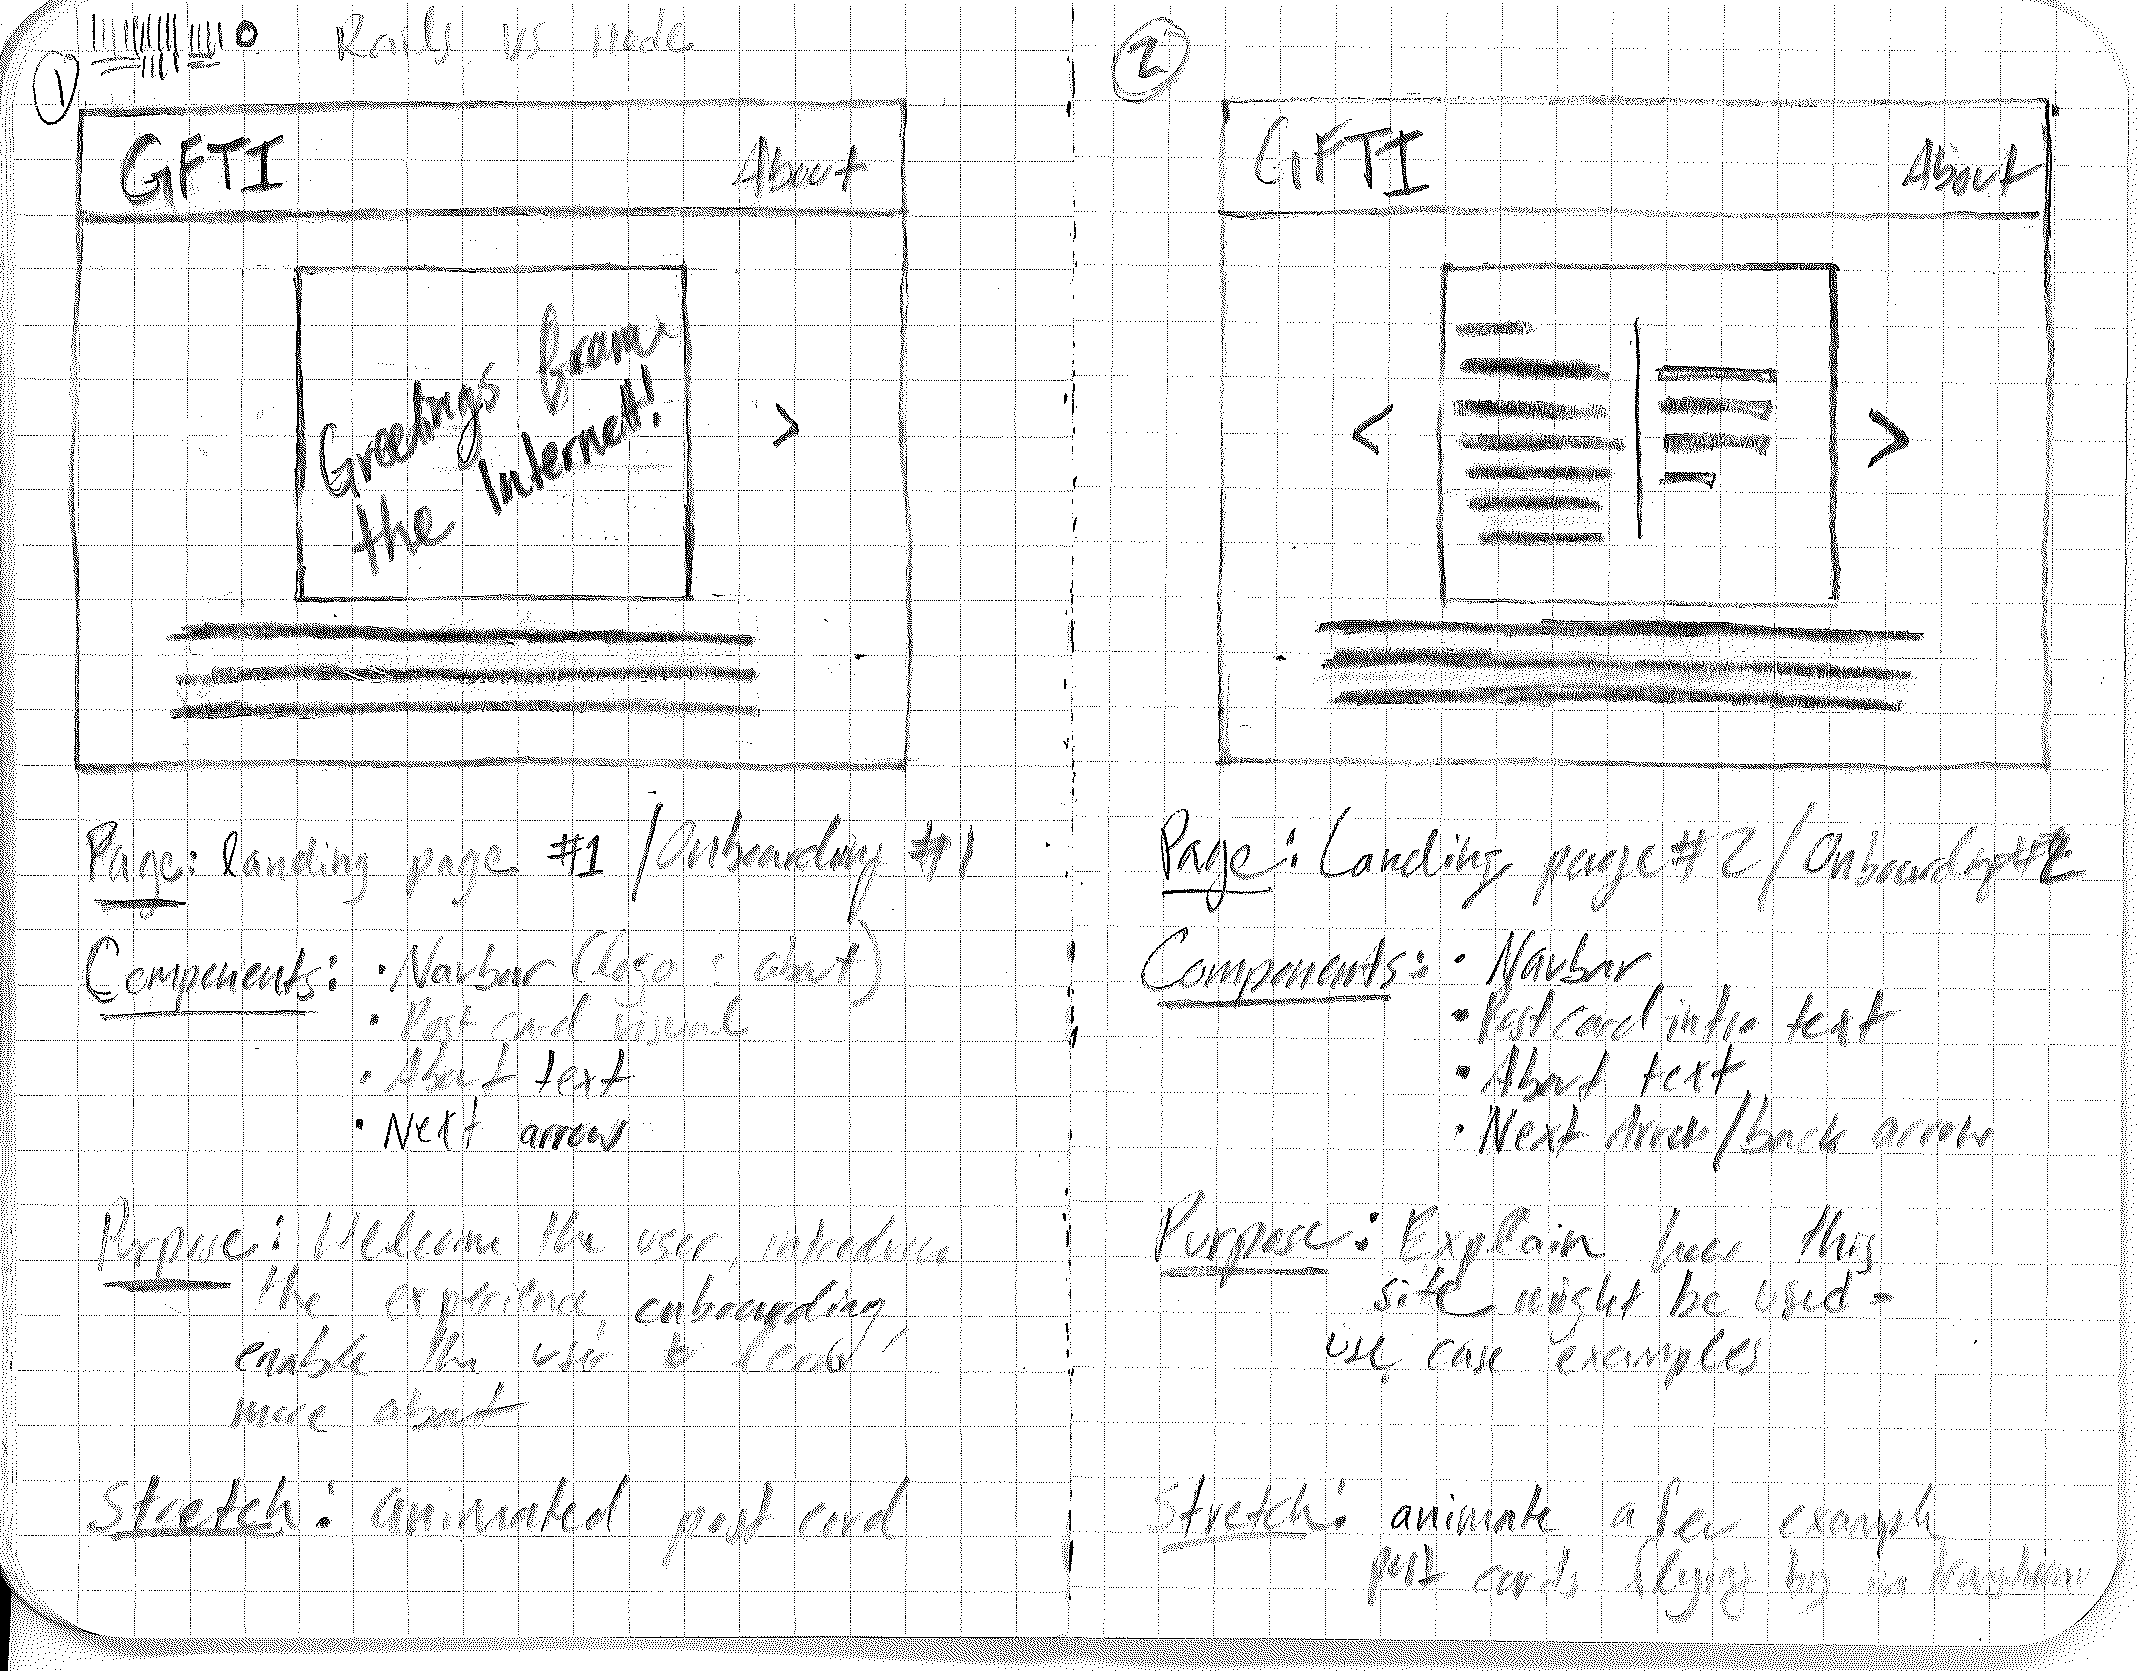 Rails vs Node
1
GFTI
About
Greetings from
the Internet!
>
Page: landing page #1 / Onboarding #1
Components: • Navbar (logo : about)
• Post card visual
• About text
• Next arrow
Purpose: Welcome the user, introduce
the experience, onboarding,
enable the user to learn
more about
Stretch: animated post card
2
GFTI
About
<
>
Page: Landing page #2 / Onboarding #2
Components: • Navbar
• Postcard intro text
• About text
• Next Arrow/back arrow
Purpose: Explain how this
site might be used -
use case examples
Stretch: animate a few example
post cards flying by in